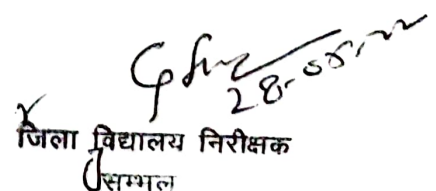 28.05.22
जिला विद्यालय निरीक्षक
सम्भल